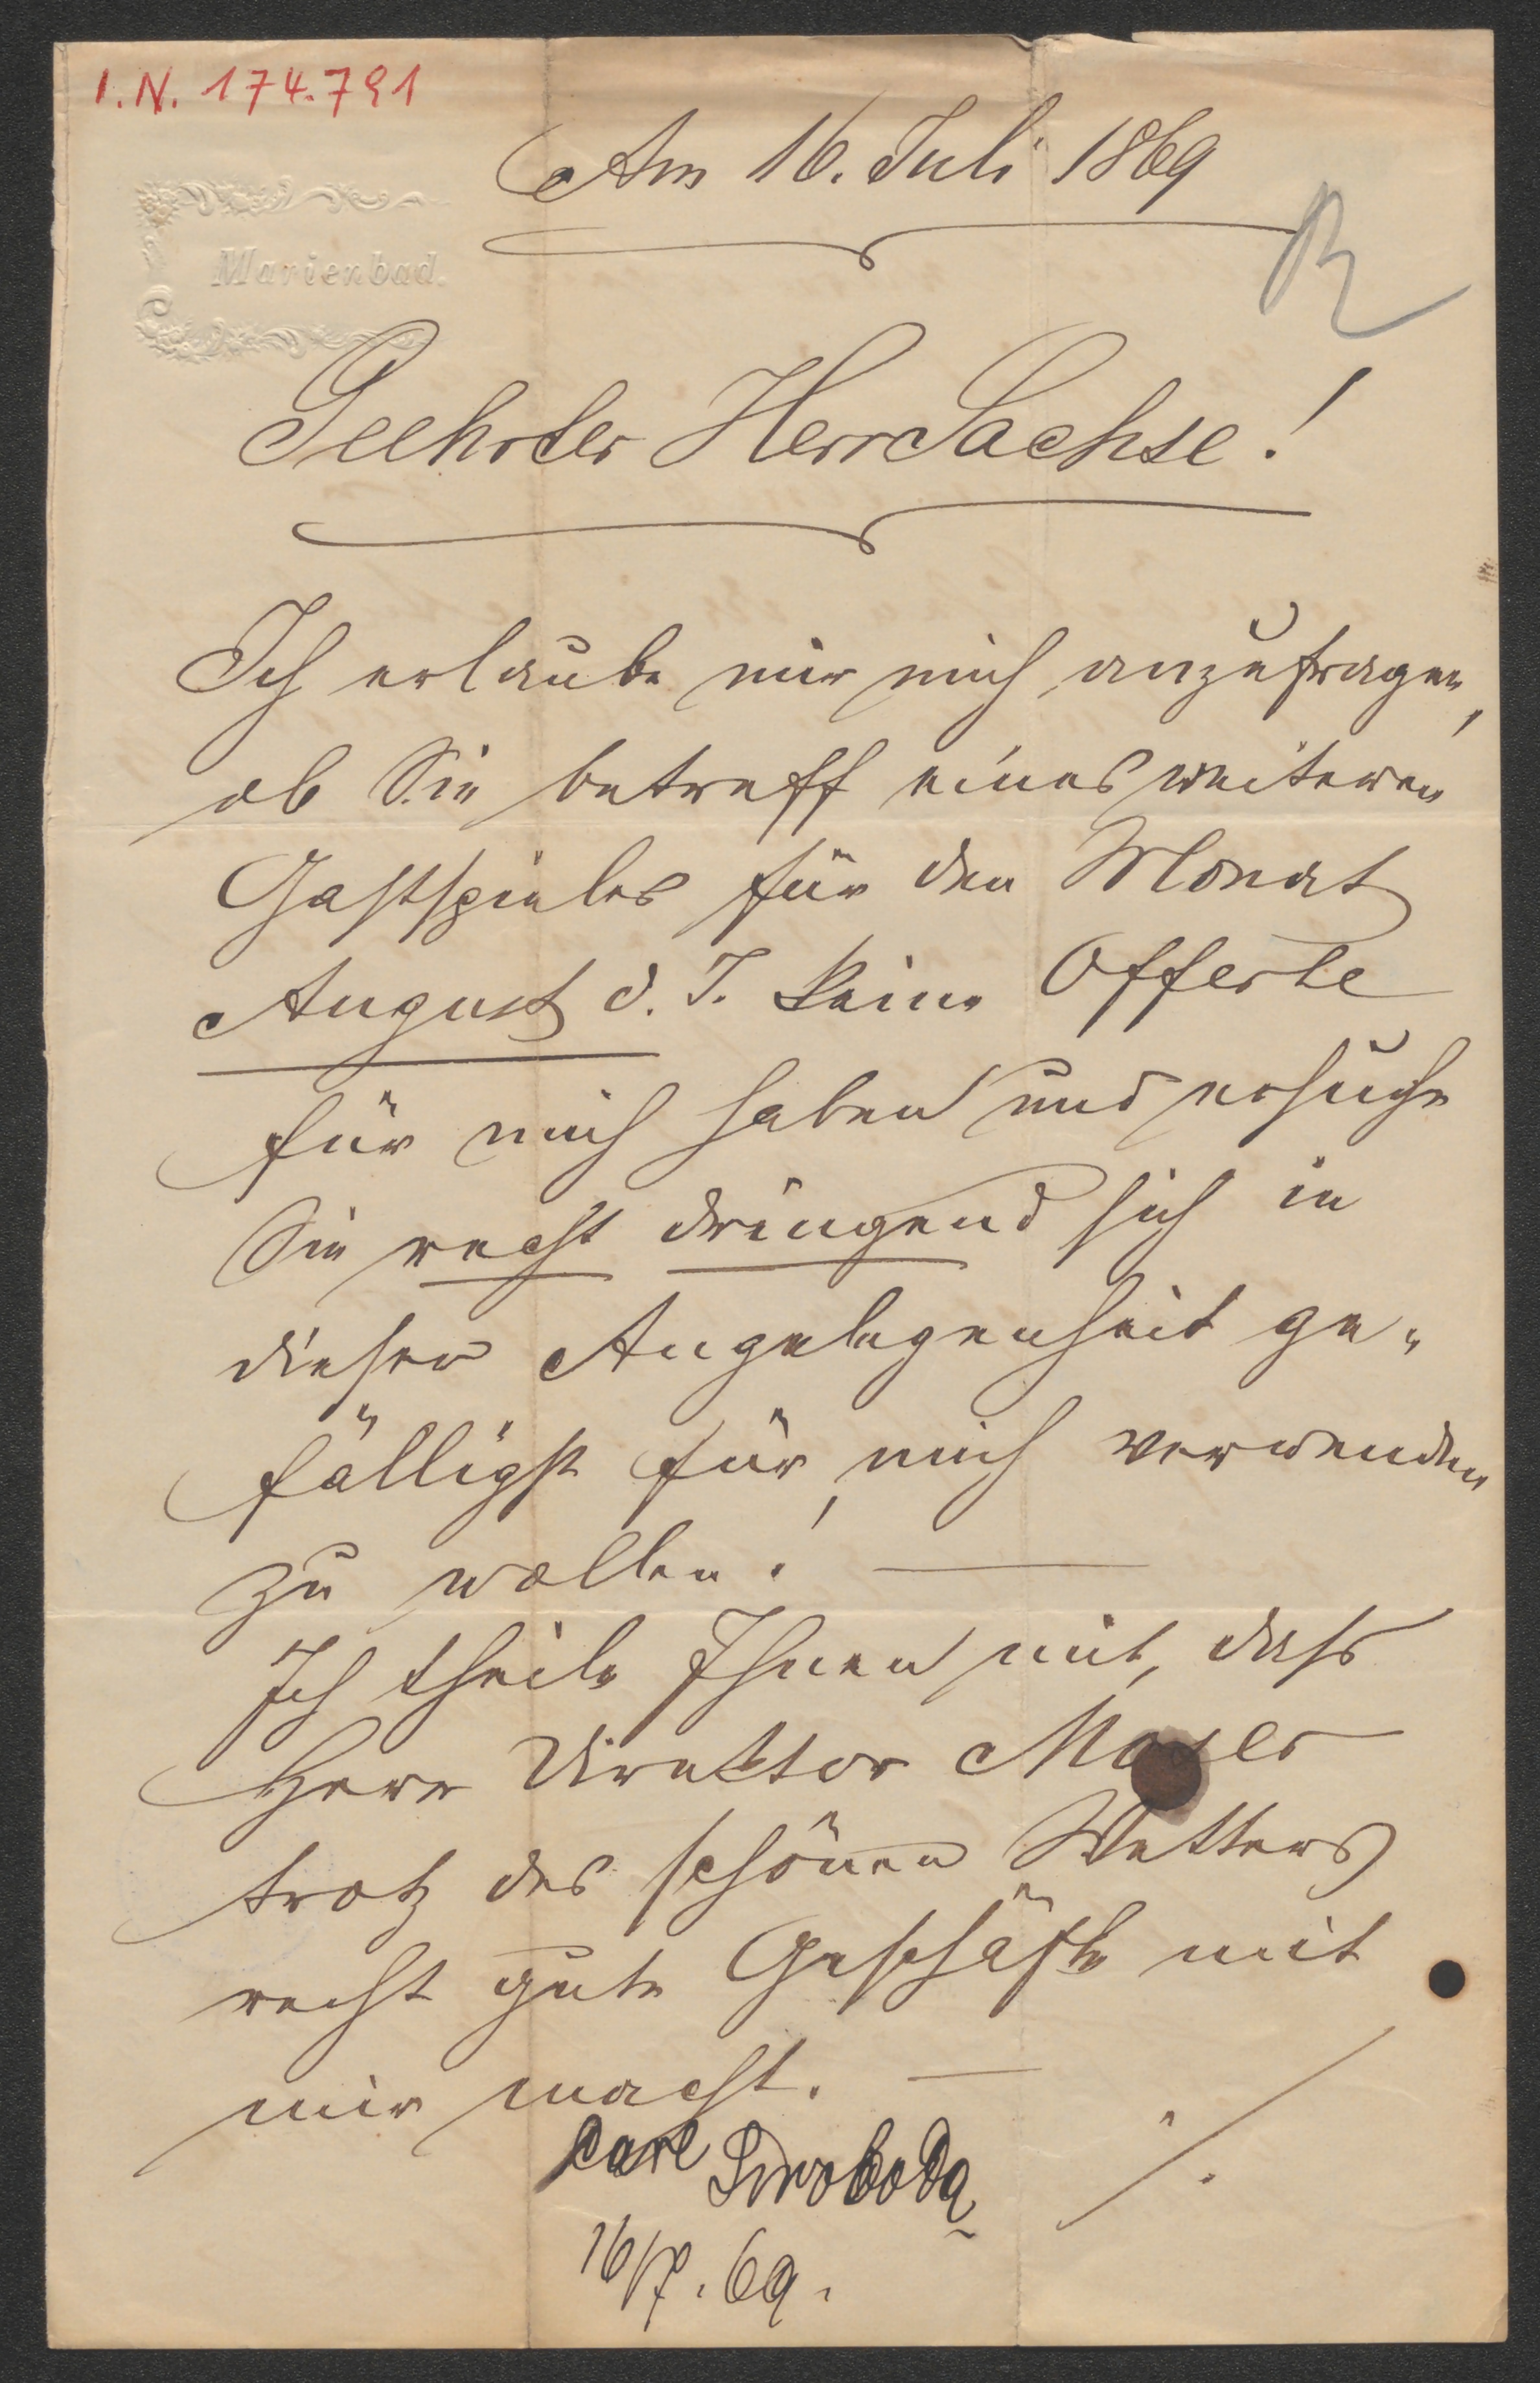 I.N. 174.791
Am 16. Juli 1869
R
Marienbad.
Geehrter Herr Sachse!
Ich erlaube mir mich anzufragen,
ob Sie betreff eines weiteren
Gastspieles für den Monat
August d. J. keine Offerte
für mich haben und ersuche
Sie recht dringend sich in
dieser Angelegenheit ge-
fälligst für mich verwenden
zu wollen! —
Ich theile Ihnen mit, dass
Herr Direktor Moser
trotz des schönen Wetters
recht gute Geschäfte mit
mir macht. —
Carl Swoboda
16/7. 69.
./.